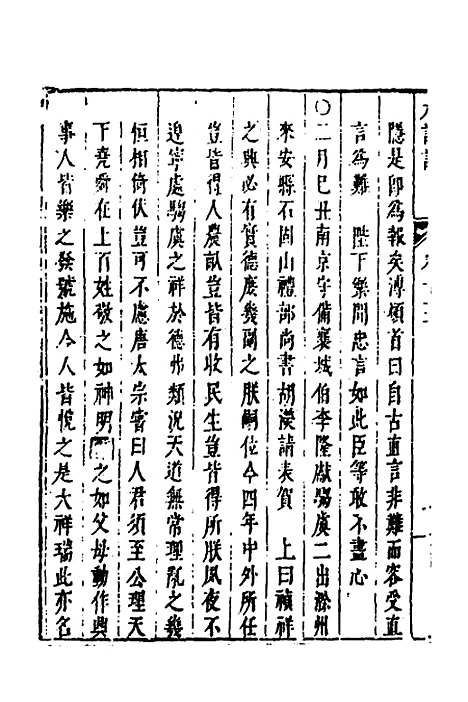 隱是卽爲報矣溥頓首曰自古直言非難而容受直
言爲難　陛下樂聞忠言如此臣等敢不盡心
○二月己丑南京守備襄城伯李隆獻騶虞二出滁州
來安縣石固山禮部尚書胡濙請表賀　上曰禎祥
之興必有實德庶幾副之朕嗣位今四年中外所任
豈皆得人農畝豈皆有收民生豈皆得所朕夙夜不
遑寧處騶虞之祥於德弗類況天道無常理亂之幾
恒相倚伏豈可不慮唐太宗嘗曰人君須至公理天
下堯舜在上百姓敬之如神明之如父母動作興
事人皆樂之發號施令人皆悅之是大祥瑞此亦名